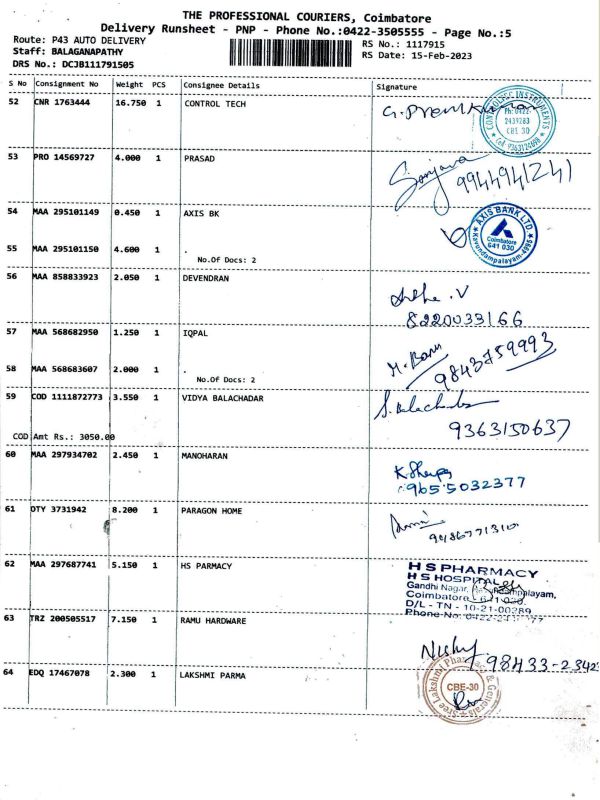 THE PROFESSIONAL COURIERS, Coimbatore
Delivery Runsheet - PNP - Phone No.:0422-3505555 - Page No.:5
Route: P43 AUTO DELIVERY
Staff: BALAGANAPATHY
DRS No.: DCJB111791505
RS No.: 1117915
RS Date: 15-Feb-2023
S No Consignment No Weight PCS Consignee Details Signature
52 CNR 1763444 16.750 1 CONTROL TECH
CONTROLTEC INSTRUMENTS
Ph: 0422-
2439283
CBE 30
53 PRO 14569727 4.000 1 PRASAD
Sanjana
9944941241
54 MAA 295101149 0.450 1 AXIS BK
AXIS BANK LTD
Coimbatore
641 030
55 MAA 295101150 4.600 1 .
No.Of Docs: 2
56 MAA 858833923 2.050 1 DEVENDRAN
8220033166
57 MAA 568682950 1.250 1 IQPAL
M. Banu
9843759993
58 MAA 568683607 2.000 1 .
No.Of Docs: 2
59 COD 1111872773 3.550 1 VIDYA BALACHADAR
9363150637
COD Amt Rs.: 3050.00
60 MAA 297934702 2.450 1 MANOHARAN
9655032377
61 OTY 3731942 8.200 1 PARAGON HOME
62 MAA 297687741 5.150 1 HS PARMACY
H S PHARMACY
H S HOSPITAL
Gandhi Nagar,
Coimbatore - 641 030.
D/L - TN - 10-21-00289
63 TRZ 200505517 7.150 1 RAMU HARDWARE
98433-2342
64 EDQ 17467078 2.300 1 LAKSHMI PARMA
Sree Lakshmi Pharmacy & Generals
CBE-30